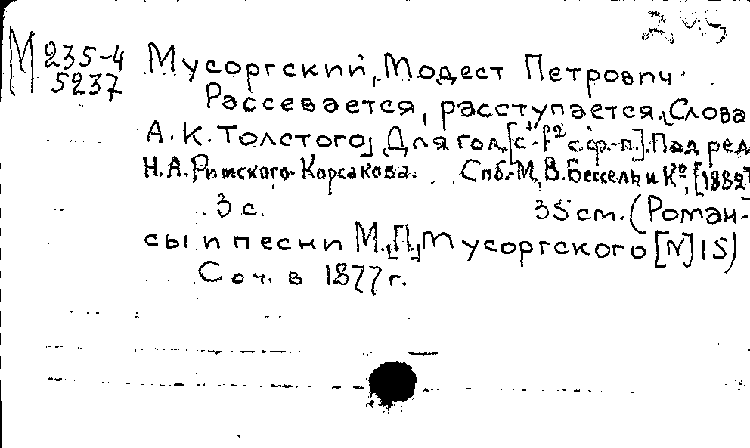 245
М 235-4 Мусоргский, Модест Петрович
5237 Рассевается, расступается. Слова
А. К. Толстого, Для гол. [c¹-f²] с ф.-п.]. Под ред.
Н. А. Римского-Корсакова. Спб.-М., В. Бессель и К°, [1882]
3 с. 35 cm. (Роман-
сы и песни М. П. Мусоргского [N] 15)
Соч. в 1877 г.